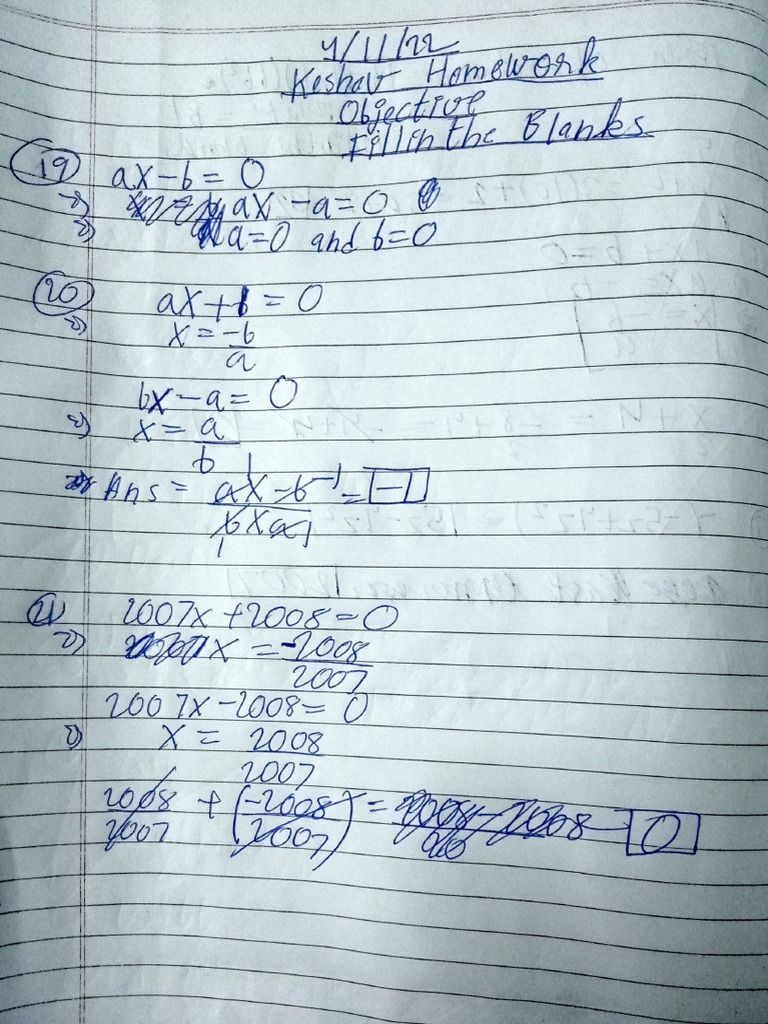 4/11/22
Keshav Homework
Objective
Fill in the Blanks
19 ax-b = 0
⇒ ax -a=0
⇒ a=0 and b=0
20 ax+b = 0
⇒ x = -b/a
bx-a = 0
⇒ x = a/b
Ans = ax-b/bxa = -1
21 2007x+2008=0
⇒ x = -2008/2007
2007x-2008= 0
⇒ x = 2008/2007
2008/2007 + (-2008/2007) = 0